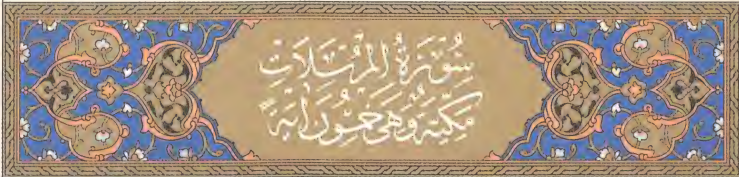 سُورَةُ المُرْسَلَاتِ
مَكِّيَّة وَهِيَ خَمْسُونَ اٰيَةً